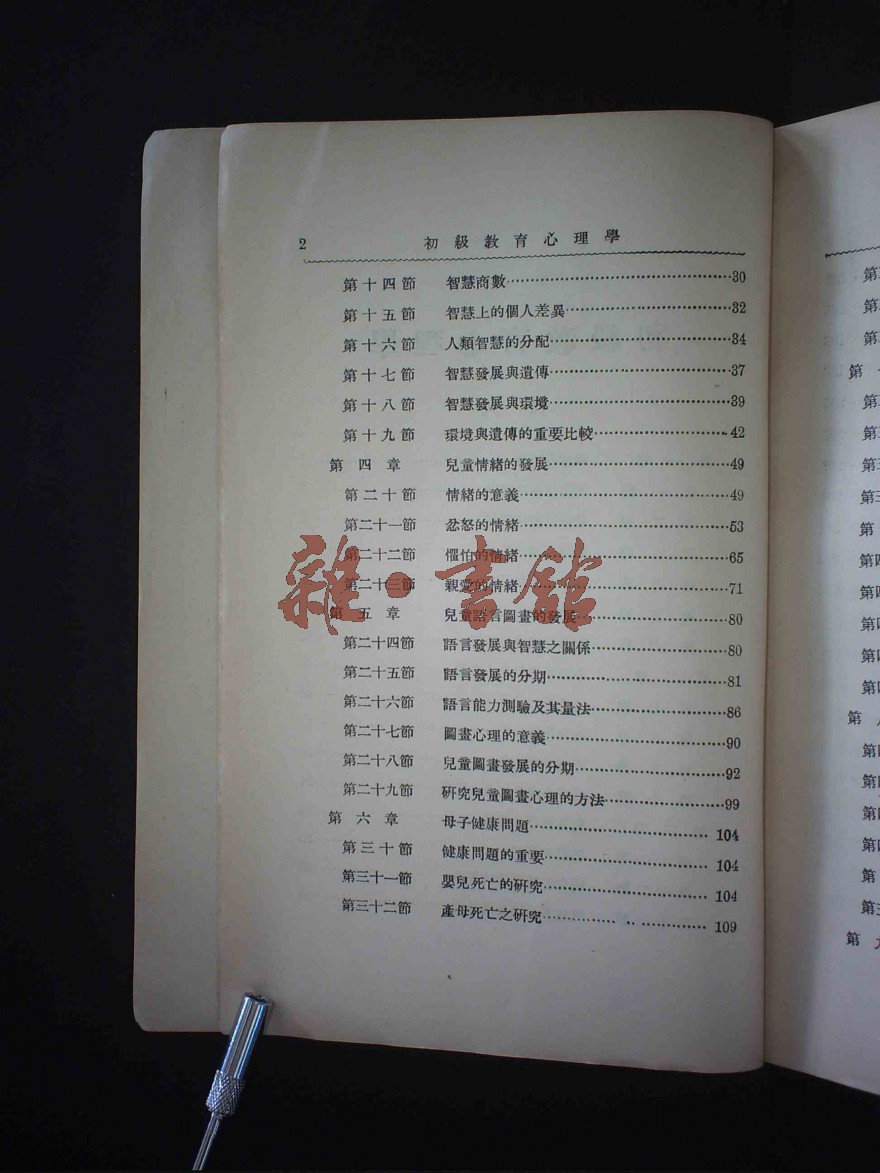 2 初級教育心理學
第十四節 智慧商數……30
第十五節 智慧上的個人差異……32
第十六節 人類智慧的分配……34
第十七節 智慧發展與遺傳……37
第十八節 智慧發展與環境……39
第十九節 環境與遺傳的重要比較……42
第四章 兒童情緒的發展……49
第二十節 情緒的意義……49
第二十一節 忿怒的情緒……53
第二十二節 懼怕的情緒……65
第二十三節 親愛的情緒……71
第五章 兒童語言圖畫的發展……80
第二十四節 語言發展與智慧之關係……80
第二十五節 語言發展的分期……81
第二十六節 語言能力測驗及其量法……86
第二十七節 圖畫心理的意義……90
第二十八節 兒童圖畫發展的分期……92
第二十九節 研究兒童圖畫心理的方法……99
第六章 母子健康問題……104
第三十節 健康問題的重要……104
第三十一節 嬰兒死亡的研究……104
第三十二節 產母死亡之研究……109
雜·書館